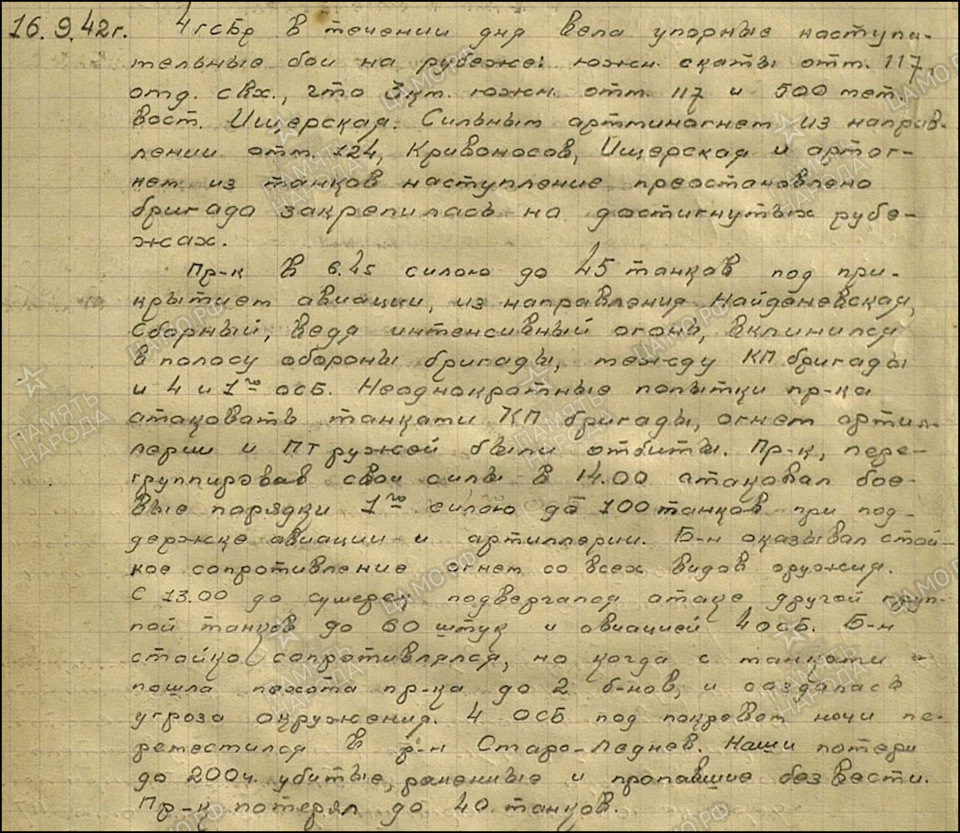 16.9.42г. 4 гсБр в течении дня вела упорные наступа-
тельные бои на рубеже: южн. скаты отм. 117,
отд. свх., что 3 км. южн. отм. 117 и 500 мет.
вост. Ищерская. Сильным артминогнем из направ-
лении отм. 124, Кривоносов, Ищерская и артог-
нем из танков наступление преостановлено
бригада закрепилась на достигнутых рубе-
жах.
Пр-к в 6.45 силою до 45 танков под при-
крытием авиации, из направления Найденевская,
Сборный, ведя интенсивный огонь, вклинился
в полосу обороны бригады, между КП бригады
и 4 и 1го осБ. Неоднократные попытки пр-ка
атаковать танками КП бригады, огнем артил-
лерии и ПТ ружей были отбиты. Пр-к, пере-
группировав свои силы в 14.00 атаковал бое-
вые порядки 1го силою до 100 танков при под-
держке авиации и артиллерии. Б-н оказывал стой-
кое сопротивление огнем со всех видов оружия.
С 13.00 до сумерек подвергался атаке другой груп-
пой танков до 60 штук и авиацией 4 осБ. Б-н
стойко сопротивлялся, но когда с танками
пошла пехота пр-ка до 2 б-нов, и создалась
угроза окружения. 4 ОСБ под покровом ночи пе-
реместился в р-н Старо-Леднев. Наши потери
до 200ч. убитые, раненные и пропавшие без вести.
Пр-к потерял до 40 танков.
ПАМЯТЬ НАРОДА
ЦАМО.РФ